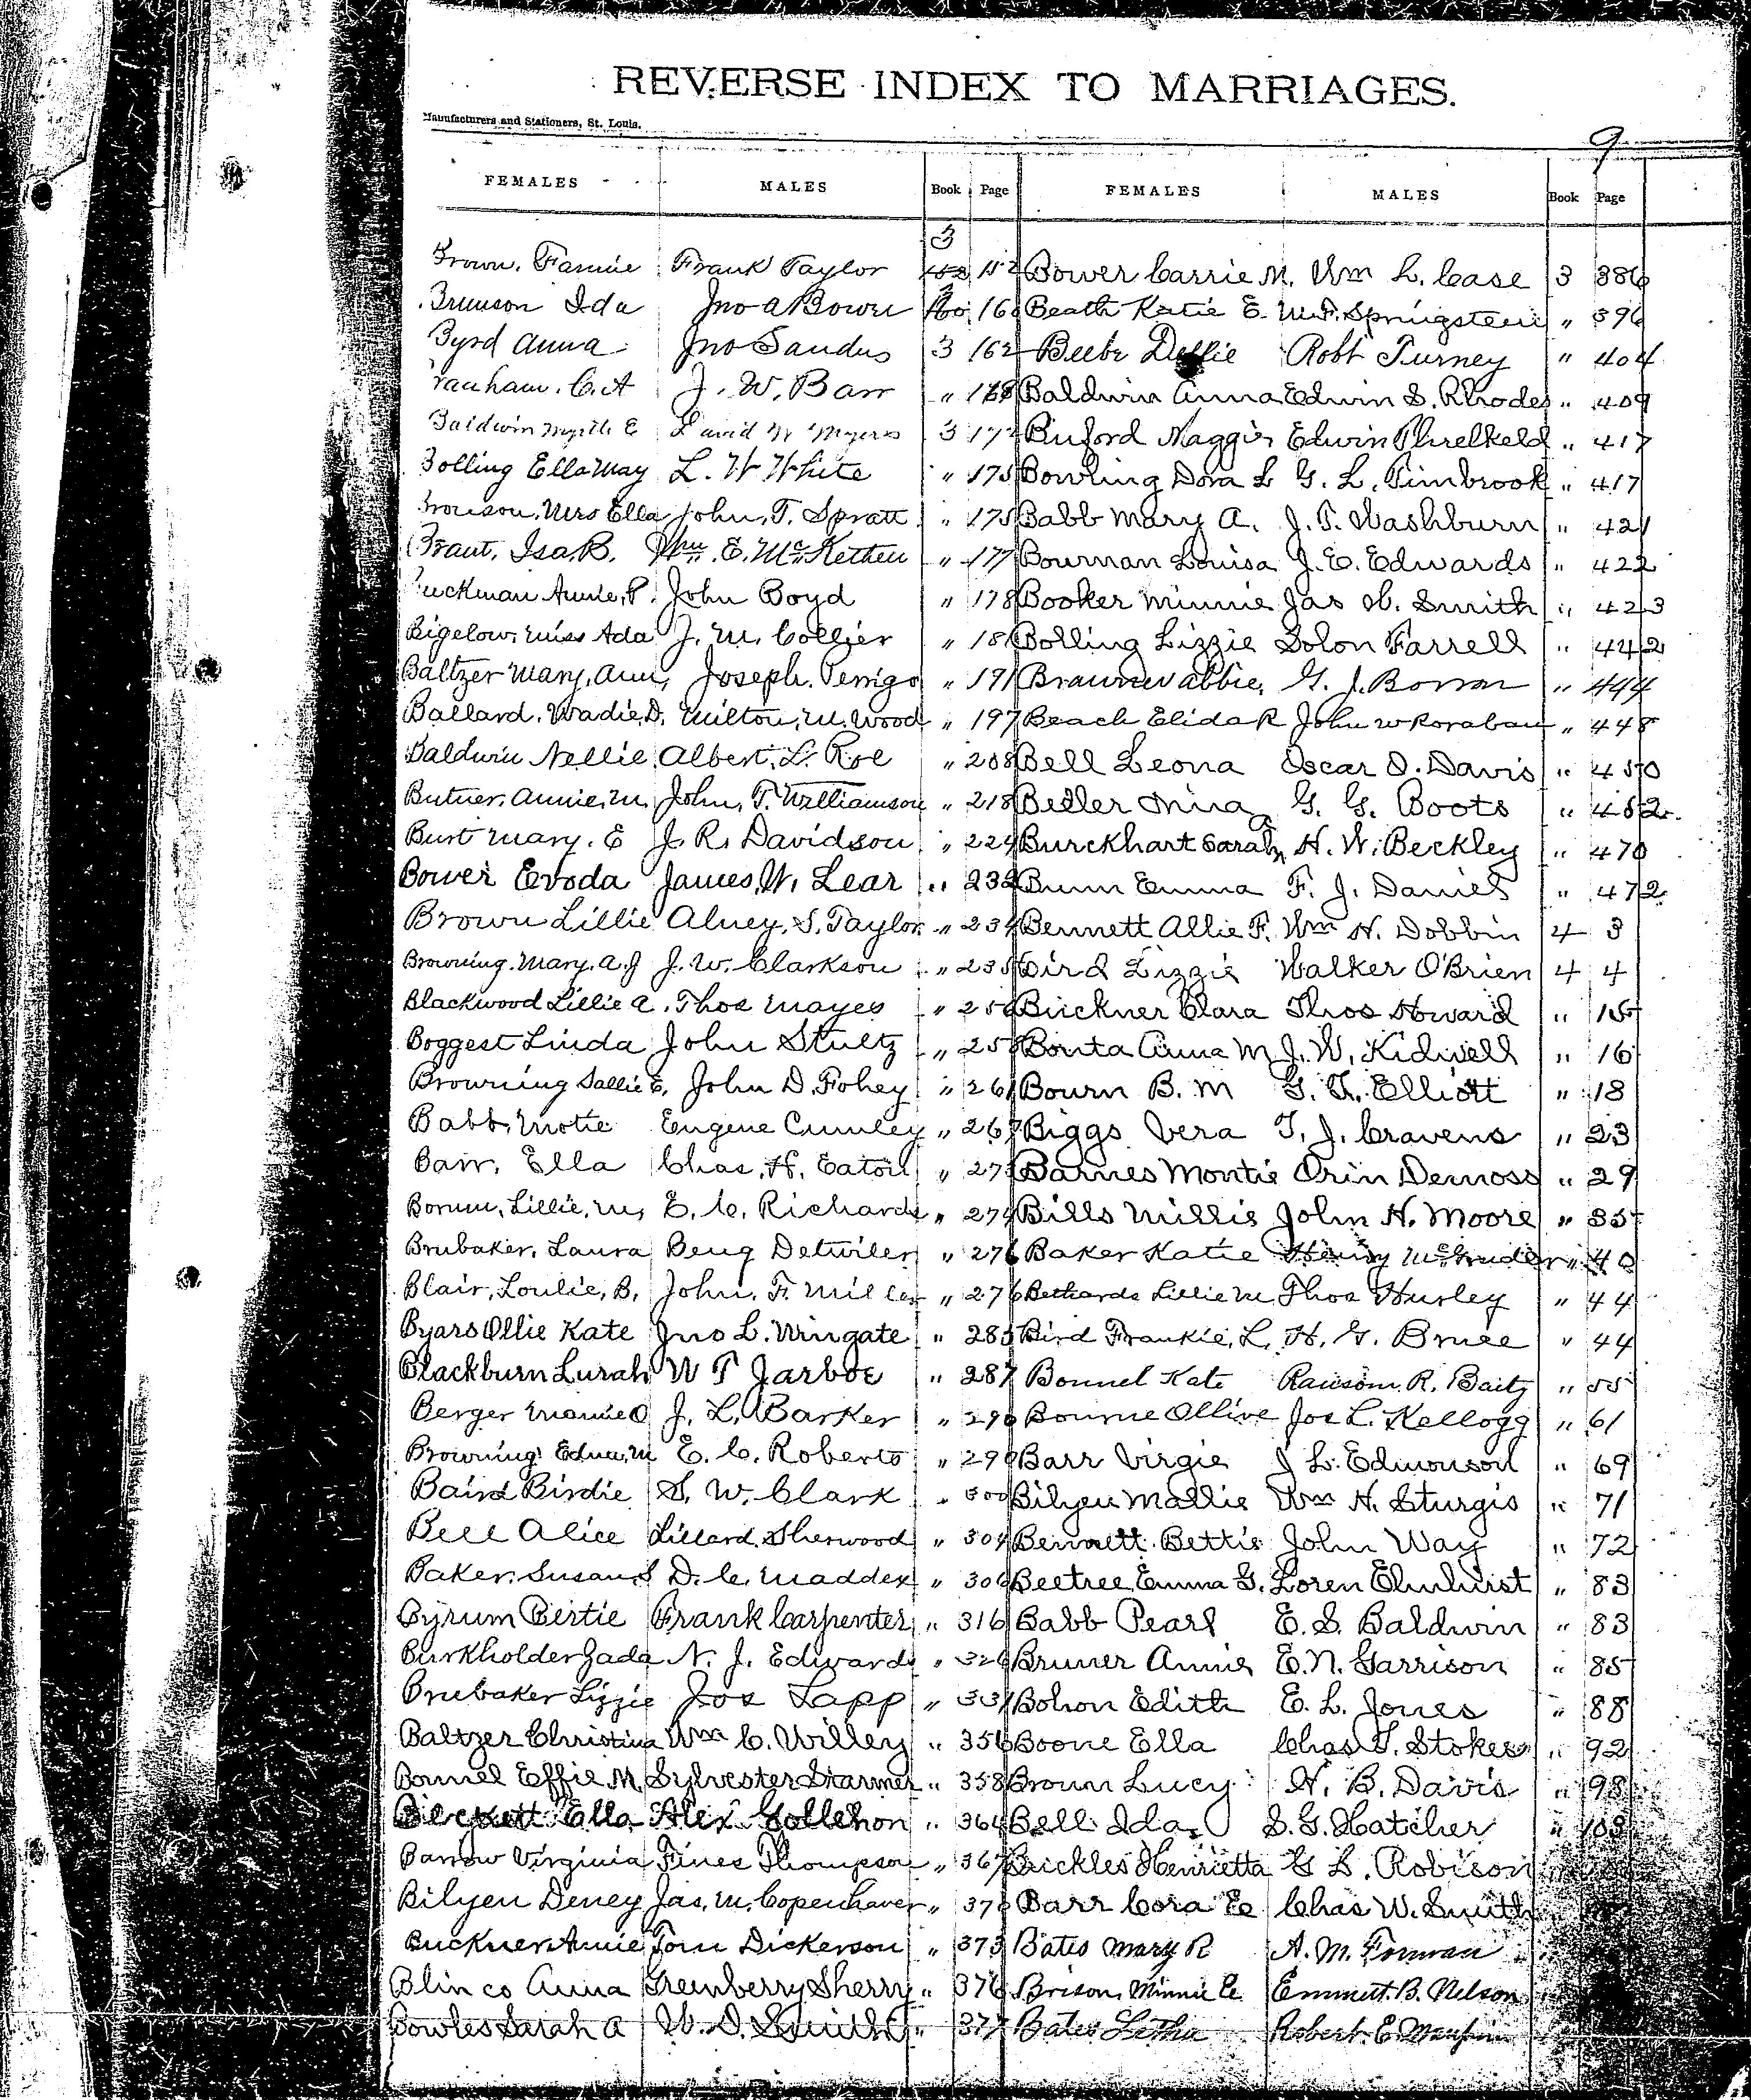 REVERSE INDEX TO MARRIAGES.
Manufacturers and Stationers, St. Louis.
9
FEMALES MALES Book Page FEMALES MALES Book Page
3
Brown. Fannie Frank Taylor 152 Bower Carrie M. Wm L. Case 3 386
Brunson Ida Jno A Bowen 3 160 Beath Katie E. W.F. Springsteen " 396
Byrd Anna Jno Sandus 3 162 Beebe Dellie Robt Turney " 404
C. A J. W. Barr " 168 Baldwin Anna Edwin S. Rhodes " 409
Baldwin Myrtle E David W Myers 3 172 Buford Maggie Edwin Threlkeld " 417
Bolling Ella May L. W White " 175 Bowling Dora L G. L. Timbrook " 417
Mrs Ella John, T. Spratt " 175 Babb Mary A. J. T. Washburn " 421
Brant, Isa. B. Wm. E. McKethen " 177 Bowman Louisa J. E. Edwards " 422
Buckman Annie, P. John Boyd " 178 Booker Minnie Jas W. Smith " 423
Bigelow, Miss Ada J. M. Collier " 181 Bolling Lizzie Solon Farrell " 442
Baltzer Mary, Ann, Joseph. Perrigo " 191 Abbie, G. J. " 444
Ballard. Wadie, D. Milton, M. Wood " 197 Beach Elida R John W Roraback " 448
Baldwin Nellie Albert, L. Roe " 208 Bell Leona Oscar D. Davis " 450
Butner, Annie, M, John, T. Williamson " 218 Bedler G. G. Boots " 452
Burt Mary. E J. R. Davidson " 224 Burckhart Sarah H. W. Beckley " 470
Bower Evoda James, W. Lear " 232 Bunn Emma F. J. Daniel " 472
Brown Lillie Alney, S. Taylor " 234 Bennett Allie F. Wm H. Dobbin 4 3
Browning. Mary. A. J J. W. Clarkson " 235 Bird Lizzie Walker O'Brien 4 4
Blackwood Lillie A. Thos Mayes " 256 Buckner Clara Thos Howard " 15
Boggest Linda John Stultz " 258 Bonta Anna M J. W. Kidwell " 16
Browning Sallie E, John D. Fohey " 261 Bourn B. M G. A. Elliott " 18
Babb, Motie Eugene Cumley " 267 Biggs Vera T. J. Cravens " 23
Barr, Ella Chas. H. Eaton " 273 Barnes Montie Orin Demoss " 29
Borum, Lillie, M, E. C. Richards " 274 Bills Millie John H. Moore " 35
Brubaker, Laura Benj Detwiler " 276 Baker Katie Henry McGruder " 40
Blair, Loulie, B, John. F. Miller " 276 Bethards Lillie M Thos Hurley " 44
Byars Ollie Kate Jno L. Wingate " 285 Bird Frankie, L. H. G. Bruce " 44
Blackburn Lurah W T Jarboe " 287 Bonnel Kate Ransom. R. Baitz " 55
Berger Mamie O J. L. Barker " 290 Bourne Ollive Jos L. Kellogg " 61
Browning Edna, M E. C. Roberts " 299 Barr Virgie J L. Edmonson " 69
Baird Birdie S. W. Clark " 300 Bilyeu Mallie Wm H. Sturgis " 71
Bell Alice Lillard Sherwood " 304 Bennett Bettie John Way " 72
Baker, Susan, S D. C. Maddex " 306 Beetree, Emma G. Loren Elmhurst " 83
Byrum Bertie Frank Carpenter " 316 Babb Pearl E. S. Baldwin " 83
Burkholder Zada N. J. Edwards " 326 Bruner Annie E. N. Garrison " 85
Brubaker Lizzie Jos Lapp " 331 Bohon Edith E. L. Jones " 88
Baltzer Christina Wm C. Willey " 356 Boone Ella Chas T. Stokes " 92
Bonnel Effie M. Sylvester Starmer " 358 Brown Lucy H. B. Davis " 98
Ella Alex Gollehon " 364 Bell Ida S. G. Hatcher " 103
Barrow Virginia Fines Thompson " 367 Brickles Henrietta G L. Robison
Bilyeu Deney Jas, M. Copenhaver " 370 Barr Cora E Chas W. Smith
Buckner Annie Tom Dickerson " 373 Bates Mary R A. M. Forman
Blinco Anna Greenberry Sherry " 376 Brison, Minnie E Emmett. B. Nelson
Bowles Sarah A W. D. Smith " 377 Bates Letha Robert. E. Maupin